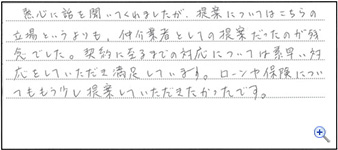 熱心に話を聞いてくれましたが、提案についてはこちらの
立場というよりも、仲介業者としての提案だったのが残
念でした。契約に至るまでの対応については素早い対
応をしていただき満足しています。ローンや保険につい
てももう少し提案していただきたかったです。